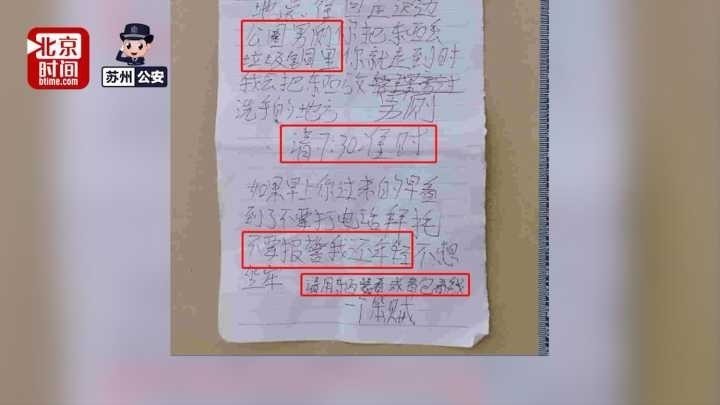 北京
时间
btime.com
苏州 公安
公园男厕你把东西丢
垃圾桶里你就走到时
我会把东西放
洗手的地方 男厕
请7:30准时
如果早上你过来的早看
到了不要打电话拜托
不要报警我还年轻不想
坐牢 请用东西装着或者包
一个笨贼